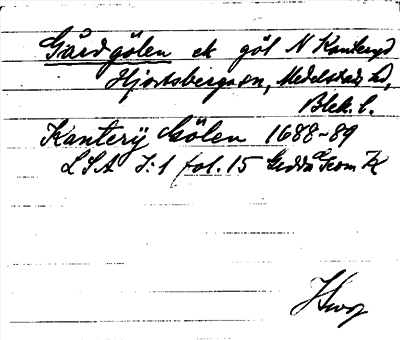 Gårdgölen ek göl N Kanteryd
Hjortsberga sn, Medelstads hd,
Blek. l.
Kanterÿ Gölen 1688-89
LSA I:1 fol. 15 Gedda Geom K